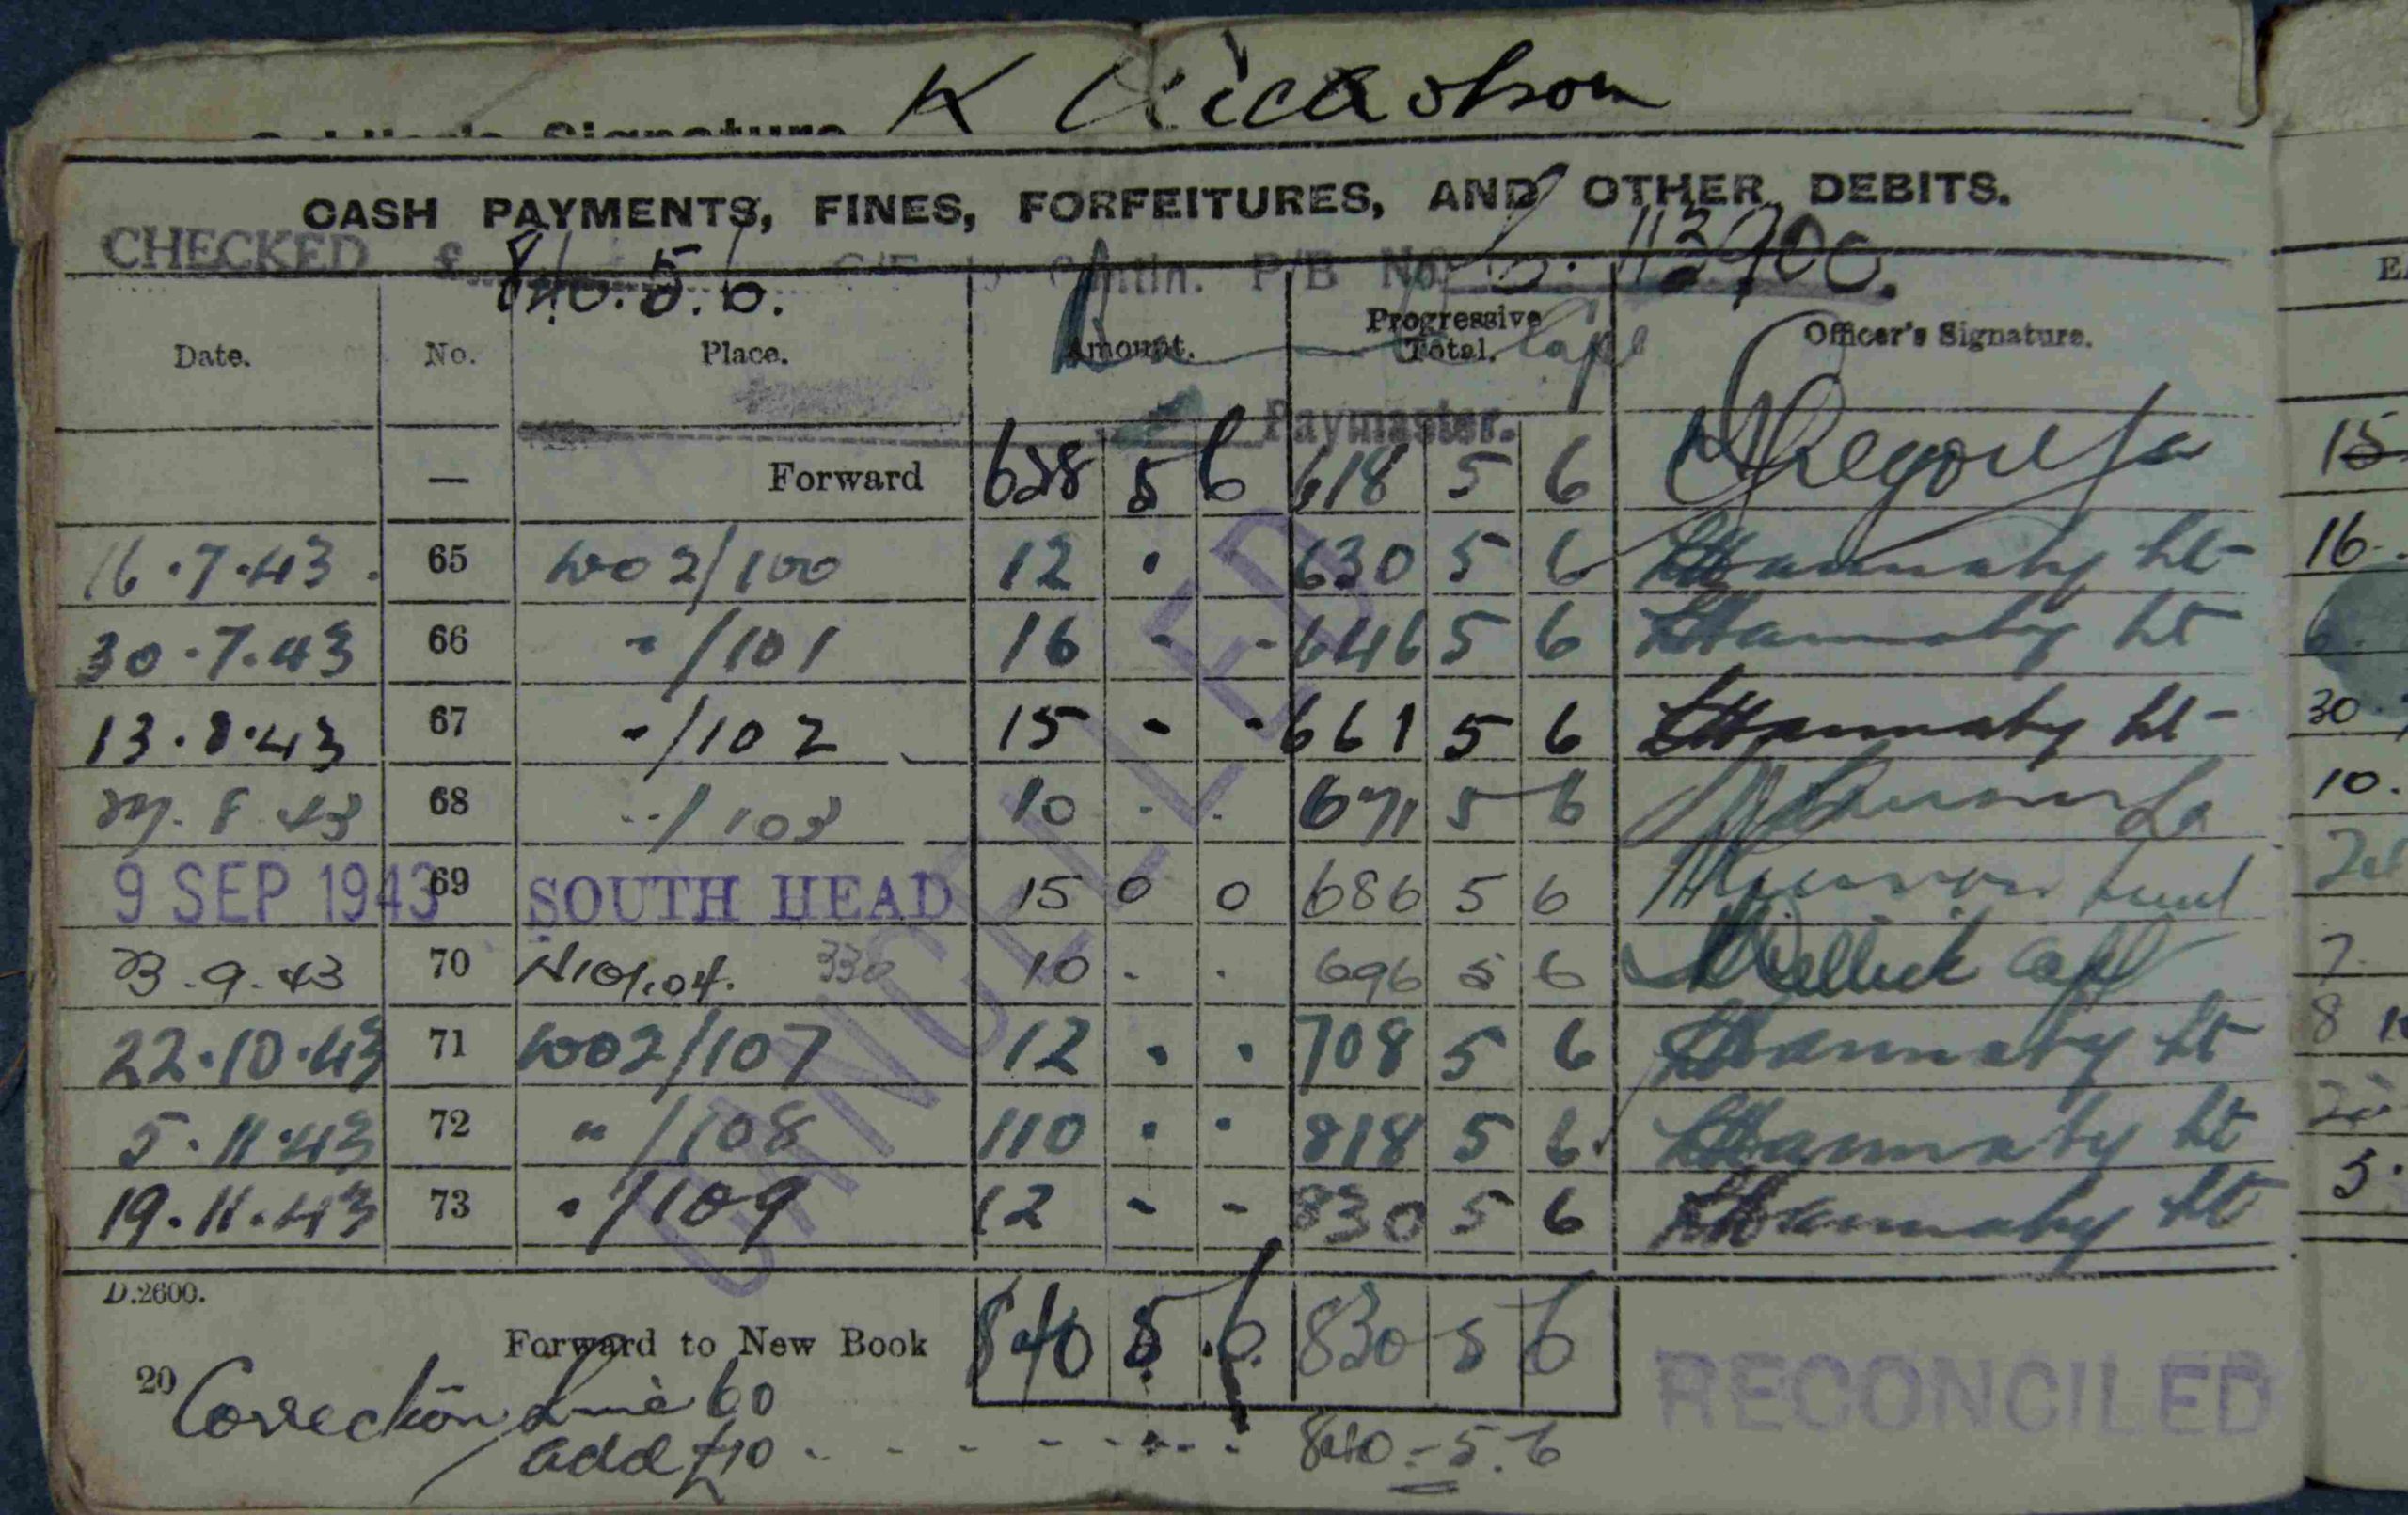 Signature K Nicholson
CASH PAYMENTS, FINES, FORFEITURES, AND OTHER DEBITS.
CHECKED £ 840.5.6. Contin. P/B No. 113900.
Date. No. Place. Amount. Progressive Total. Officer's Signature.
Capt
Paymaster.
— Forward 628 5 6 618 5 6
16.7.43. 65 WO2/100 12 . 630 5 6 Lt
30.7.43 66 "/101 16 - - 646 5 6 Lt
13.8.43 67 "/102 15 - - 661 5 6 Lt
27.8.43 68 "/103 10 . . 671 5 6
9 SEP 1943 69 SOUTH HEAD 15 0 0 686 5 6
23.9.43 70 330 10 . . 696 5 6 Capt
22.10.43 71 WO2/107 12 . . 708 5 6 Lt
5.11.43 72 "/108 110 . . 818 5 6 Lt
19.11.43 73 "/109 12 - - 830 5 6 Lt
CANCELLED
D.2600.
Forward to New Book 840 5.6. 830 5 6
20 Correction Line 60
add £10 840-5.6
RECONCILED
15
16.
6.
30.
10.
7.
8
5.